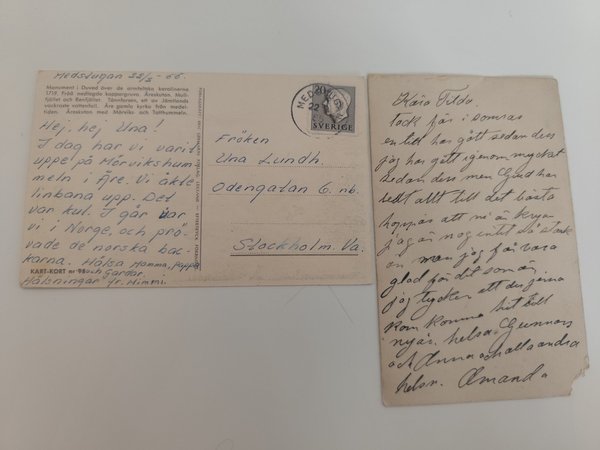 Medstugan 22/2 - 66.
Monument i Duved över de armfeltska karolinerna
1719. Fröå nedlagda koppargruvn. Åreskutan. Mull-
fjället och Renfjället. Tännforsen, ett av Jämtlands
vackraste vattenfall. Åre gamla kyrka från medel-
tiden. Åreskutan med Mörviks- och Totthummeln.
Hej, hej Una!
I dag har vi varit
uppe på Mörvikshum-
meln i Åre. Vi åkte
linbana upp. Det
var kul. I går var
vi i Norge, och prö-
vade de norska bac-
karna. Hälsa Mamma, Pappa
KART-KORT nr 98 och Gardar.
Hälsningar fr. Mimmi.
MEDSTUGAN
22
SVERIGE
Fröken
Una Lundh.
Odengatan 6. nb.
Stockholm. Va.
Kära Tilda.
tack för i somras
en titt har gått sedan dess
jag har gått igenom mycket
sedan dess men Gud har
ledt allt till det bästa
hoppas att ni är krya
jag är nog intet så stark
än men jag får vara
glad för det som är.
jag tycker att du gärna
kom komma hit till
nyår. helsa Gunnars
och Anna och alla andra
helsn. Amanda